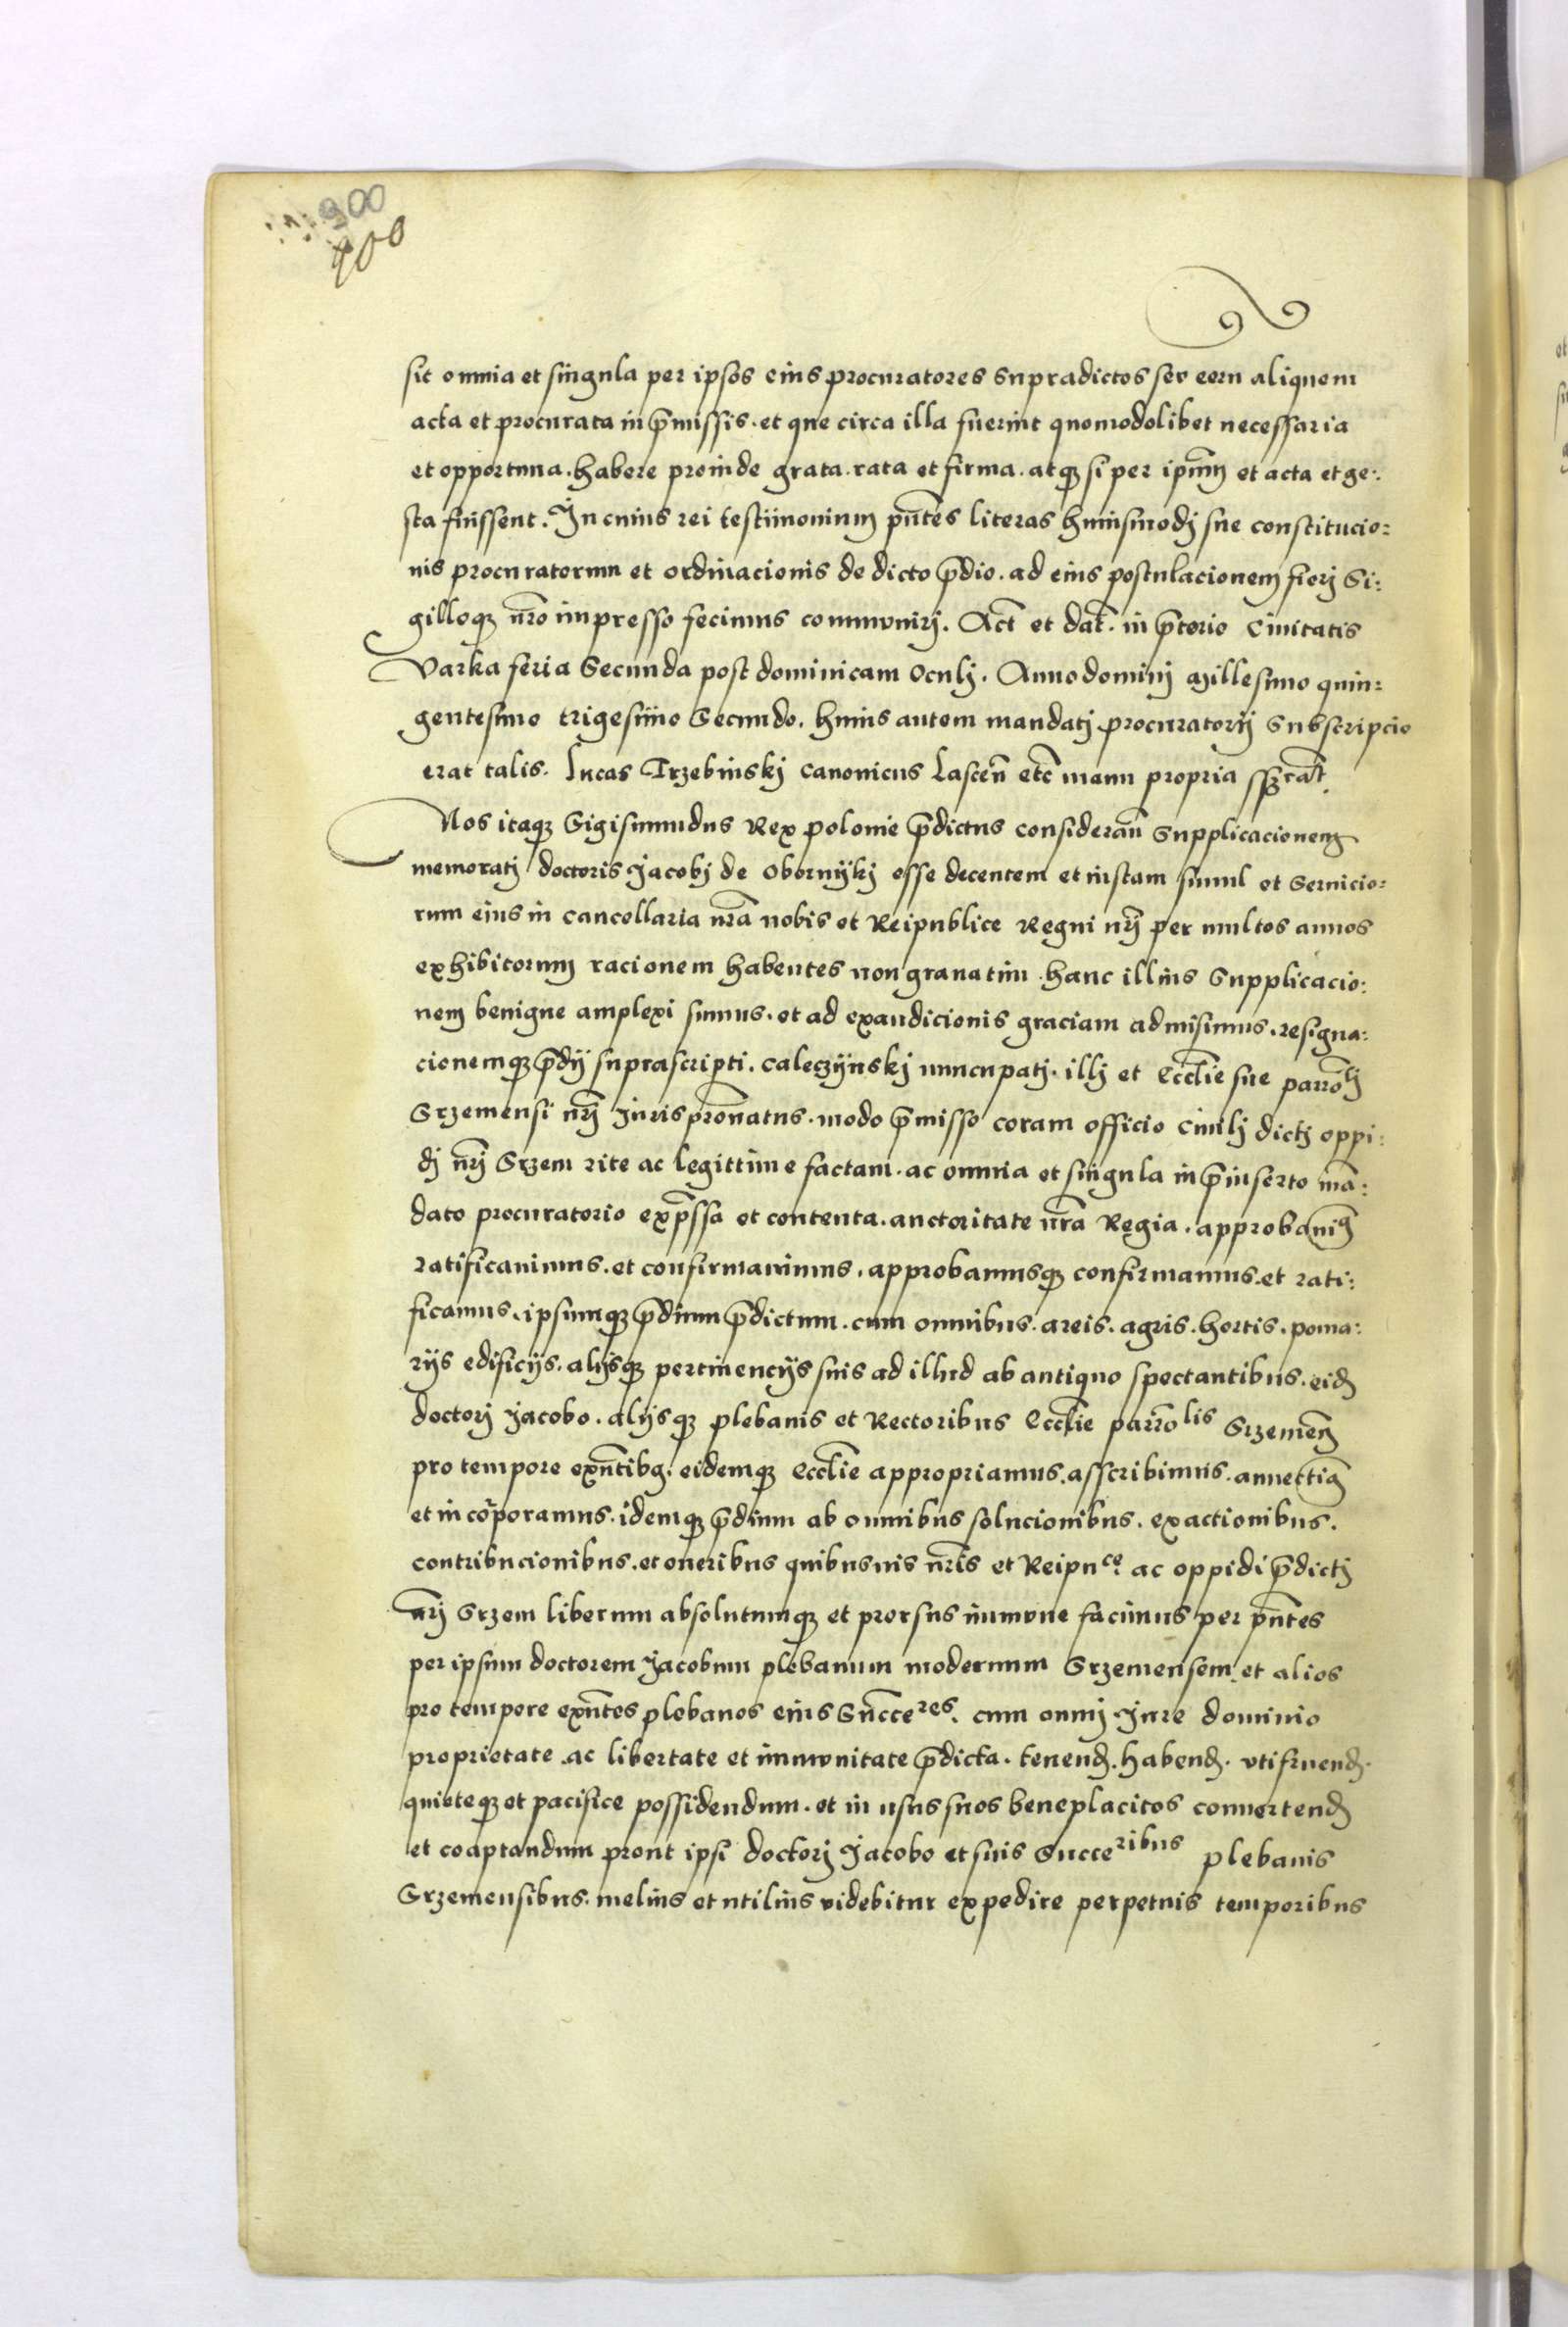 900
900
sit omnia et singula per ipsos eius procuratores supradictos seu eoru aliquem
acta et procurata in p̄missis. et que circa illa fuerint quomodolibet necessaria
et opportuna. habere proinde grata. rata et firma. atqȝ si per ipm̄ et acta et ge:
sta fuissent. In cuius rei testimonium pn̄tes literas huiusmodj sue constitucio:
nis procuratorum et ordinacionis de dicto p̄dio. ad eius postulacionem fierj Si:
gilloqȝ nr̄o impresso fecimus communirj. Act̄ et dat̄. in p̄torio Ciuitatis
Varka feria Secunda post dominicam Oculj. Anno dominj Millesimo quin:
gentesimo trigesimo Secundo. huius autem mandatj procuratorij Subscripcio
erat talis. Lucas Trzebinskj Canonicus Lascen̄ etc̄ manu propria
Nos itaqȝ Sigismundus Rex Polonie p̄dictus consideran̄ Supplicacionem
memoratj doctoris Jacobj de Obornÿkj esse decentem et iustam simul et Seruicio:
rum eius in Cancellaria nr̄a nobis et Reipublice Regni nr̄j per multos annos
exhibitorum racionem habentes non grauatim hanc illius Supplicacio:
nem benigne amplexi sumus. et ad exaudicionis graciam admisimus. resigna:
cionemqȝ p̄dij suprascripti. Caleczÿnskj nuncupatj. illj et Eccl̄ie sue parro̅lj
Srzemensi nr̄j Jurispron̄atus. modo p̄misso coram officio Ciuilj dictj oppi:
dj nr̄j Srzem rite ac legittime factam. ac omnia et singula in p̄inserto ma̅:
dato procuratorio exp̄ssa et contenta. auctoritate nr̄a Regia. approbauim9
ratificauimus. et confirmauimus. approbamusqȝ confirmamus. et rati:
ficamus. ipsumqȝ p̄dium p̄dictum. cum omnibus. areis. agris. hortis. poma:
rijs edificijs. alijsqȝ pertinencijs suis ad illud ab antiquo spectantibus. eid̄
doctorj Jacobo. alijsqȝ plebanis et Rectoribus Eccl̄ie parro̅lis Srzemen̄
pro tempore exn̄tibg. eidemqȝ Eccl̄ie appropriamus. asscribimus. annectim9
et incorporamus. idemqȝ p̄dium ab omnibus solucionibus. exactionibus.
contribucionibus. et oneribus quibusuis nr̄is et Reipuce. ac oppidi p̄dictj
nr̄j Srzem liberum absolutumqȝ et prorsus immune facimus per pn̄tes
per ipsum doctorem Jacobum plebanum modernum Srzemensem. et alios
pro tempore exn̄tes plebanos eius Succeres. cum omnj Jure dominio
proprietate ac libertate et immunitate p̄dicta. tenend̄. habend̄. vtifruend̄.
quieteqȝ et pacifice possidendum. et in usus suos beneplacitos conuertend̄
et coaptandum prout ipsi doctorj Jacobo et suis Succeribus plebanis
Srzemensibus. melius et utilius videbitur expedire perpetuis temporibus